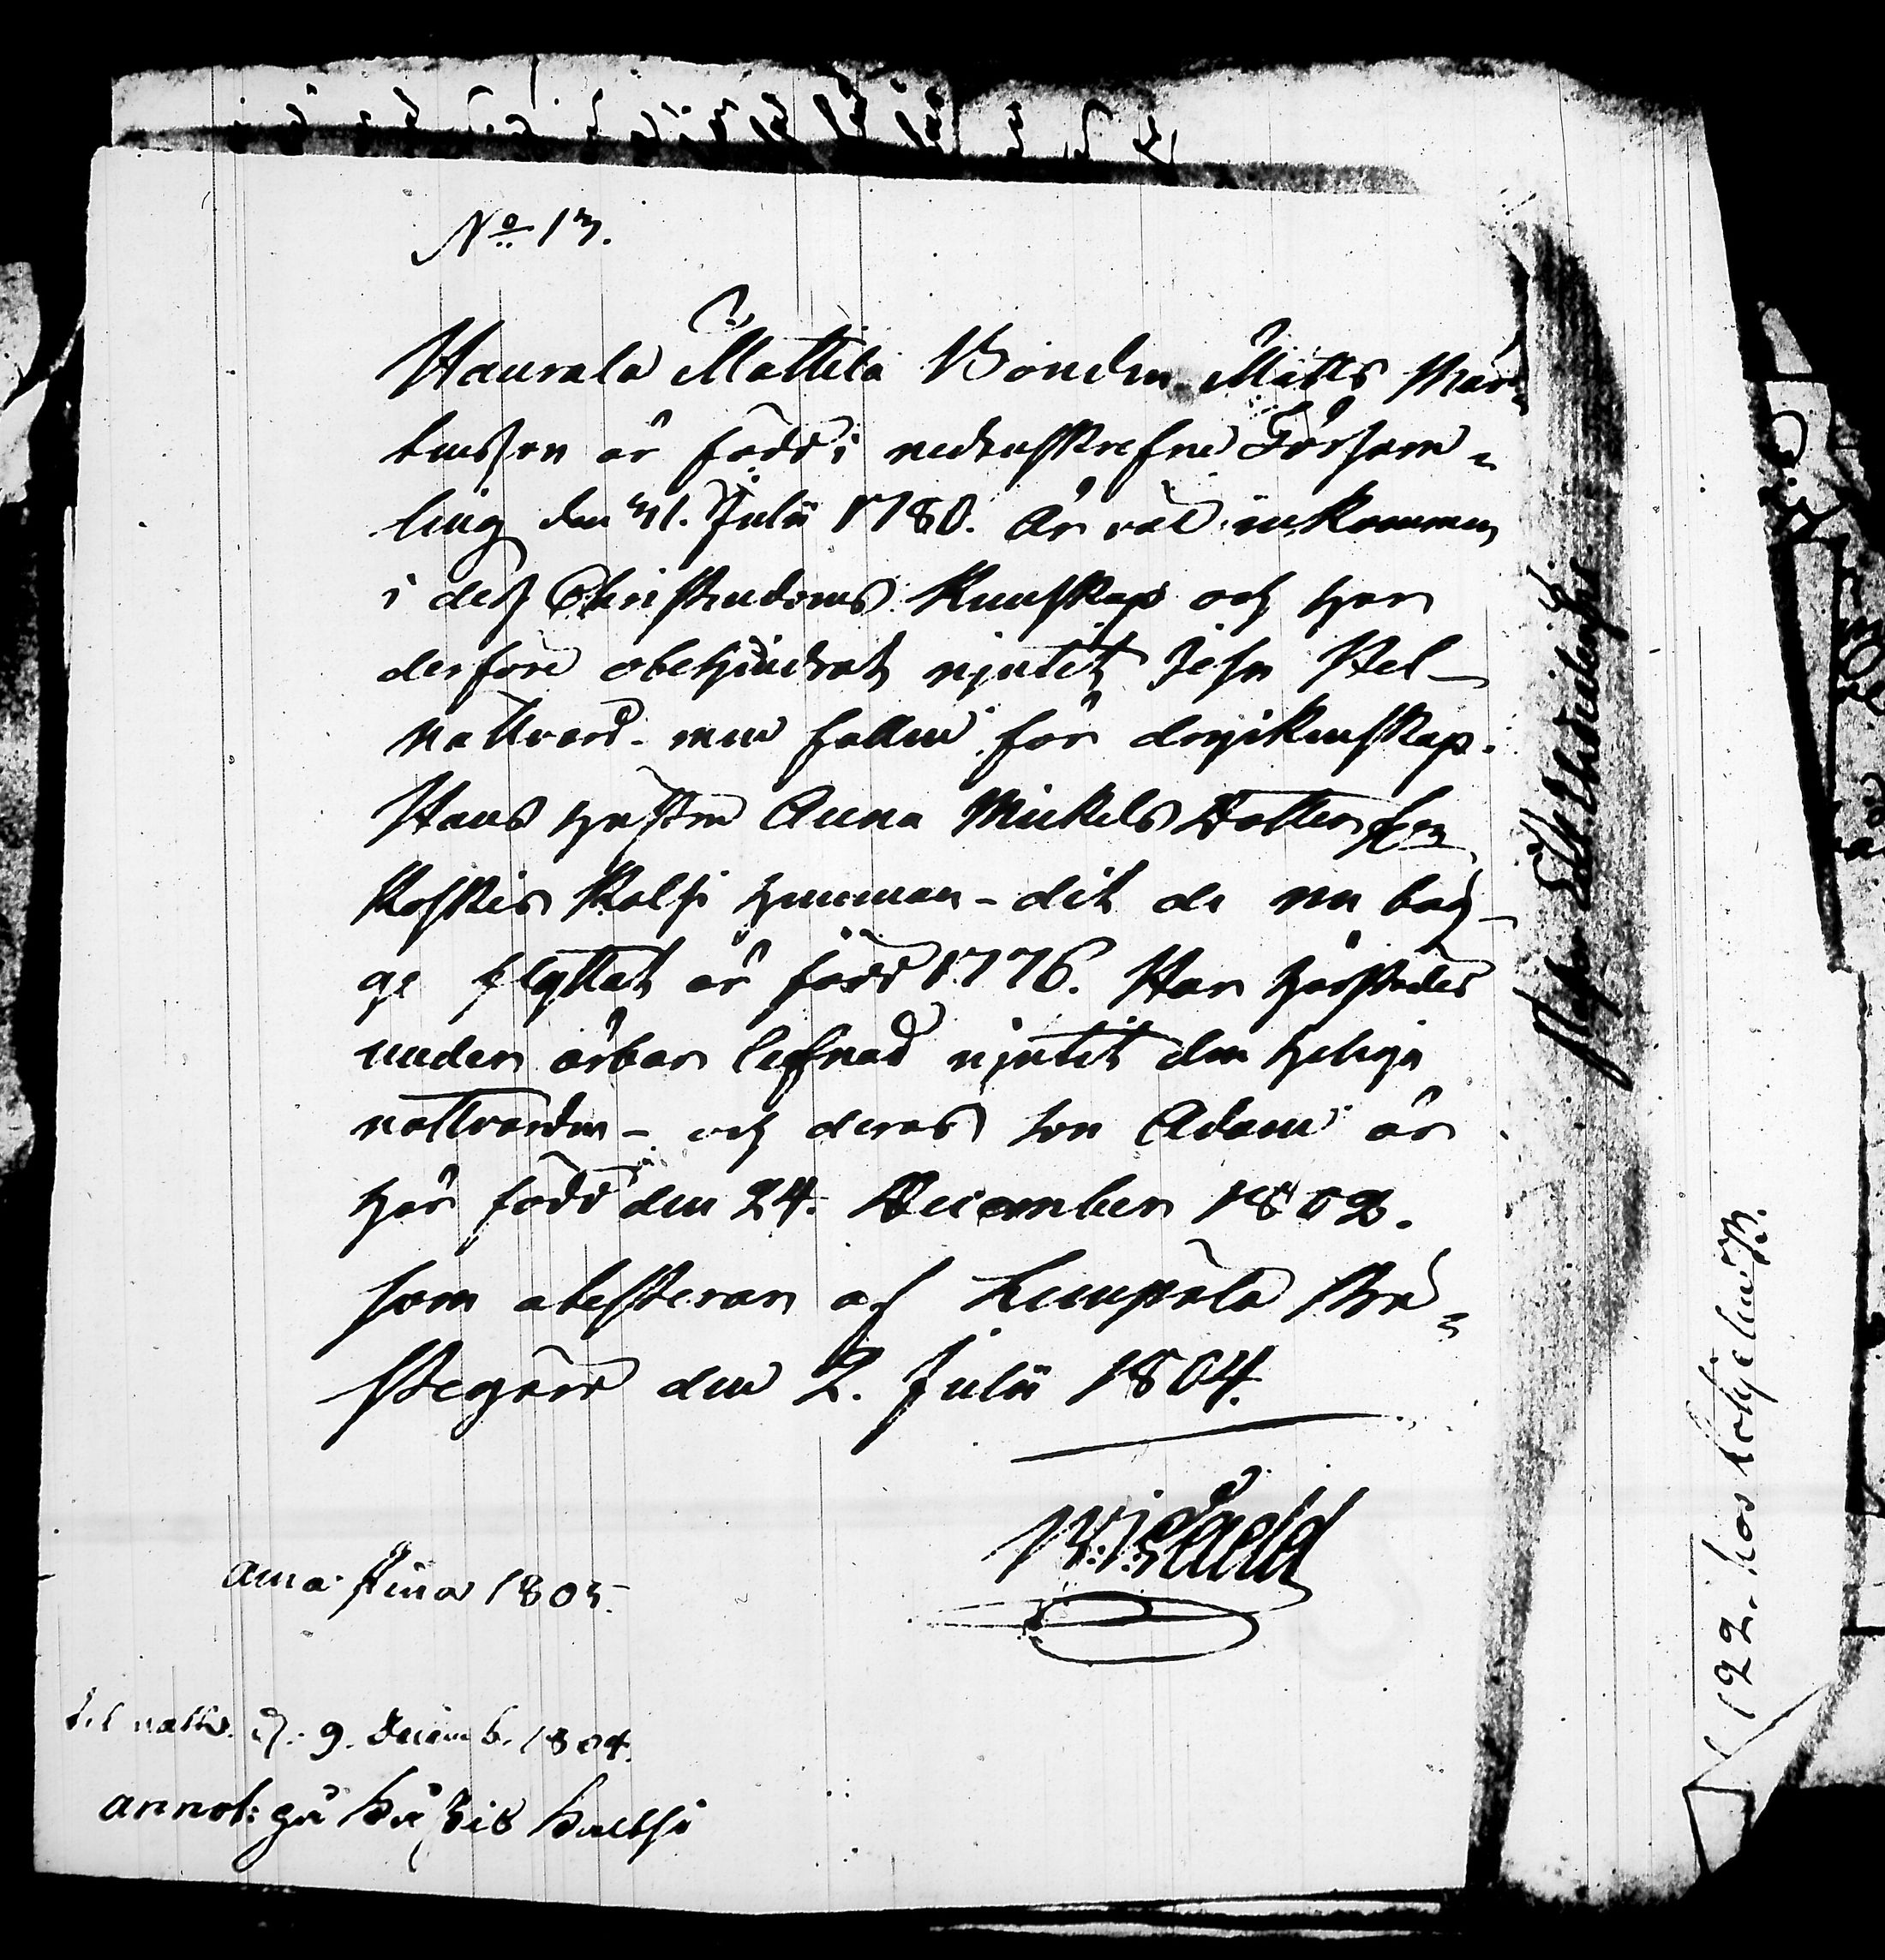 No 13.
Haurala Mattila Bonden Matts Mår-
tensson är född i nedanskrefne Försam-
ling den 31. Julii 1780. Är väl inkommen
i dess Christendoms Kunskap och har
derföre obehindrat njutit Jesu Hel-
nattvard - men fallen för dryckenskap.
Hans hustru Anna Mickels Dotter från
Koskis Kolsi hemman - dit de nu båg-
ge flyttat är född 1776. Har härstädes
under ärbar lefnad njutit den heliga
nattvarden - och deras son Adam är
här född den 24. December 1802.
som attesterar af Lempälä Prä-
stegård den 2. Julii 1804.
Anna Stina 1805.
til nattv. d. 9. Decemb. 1804.
annot: på
122. hos